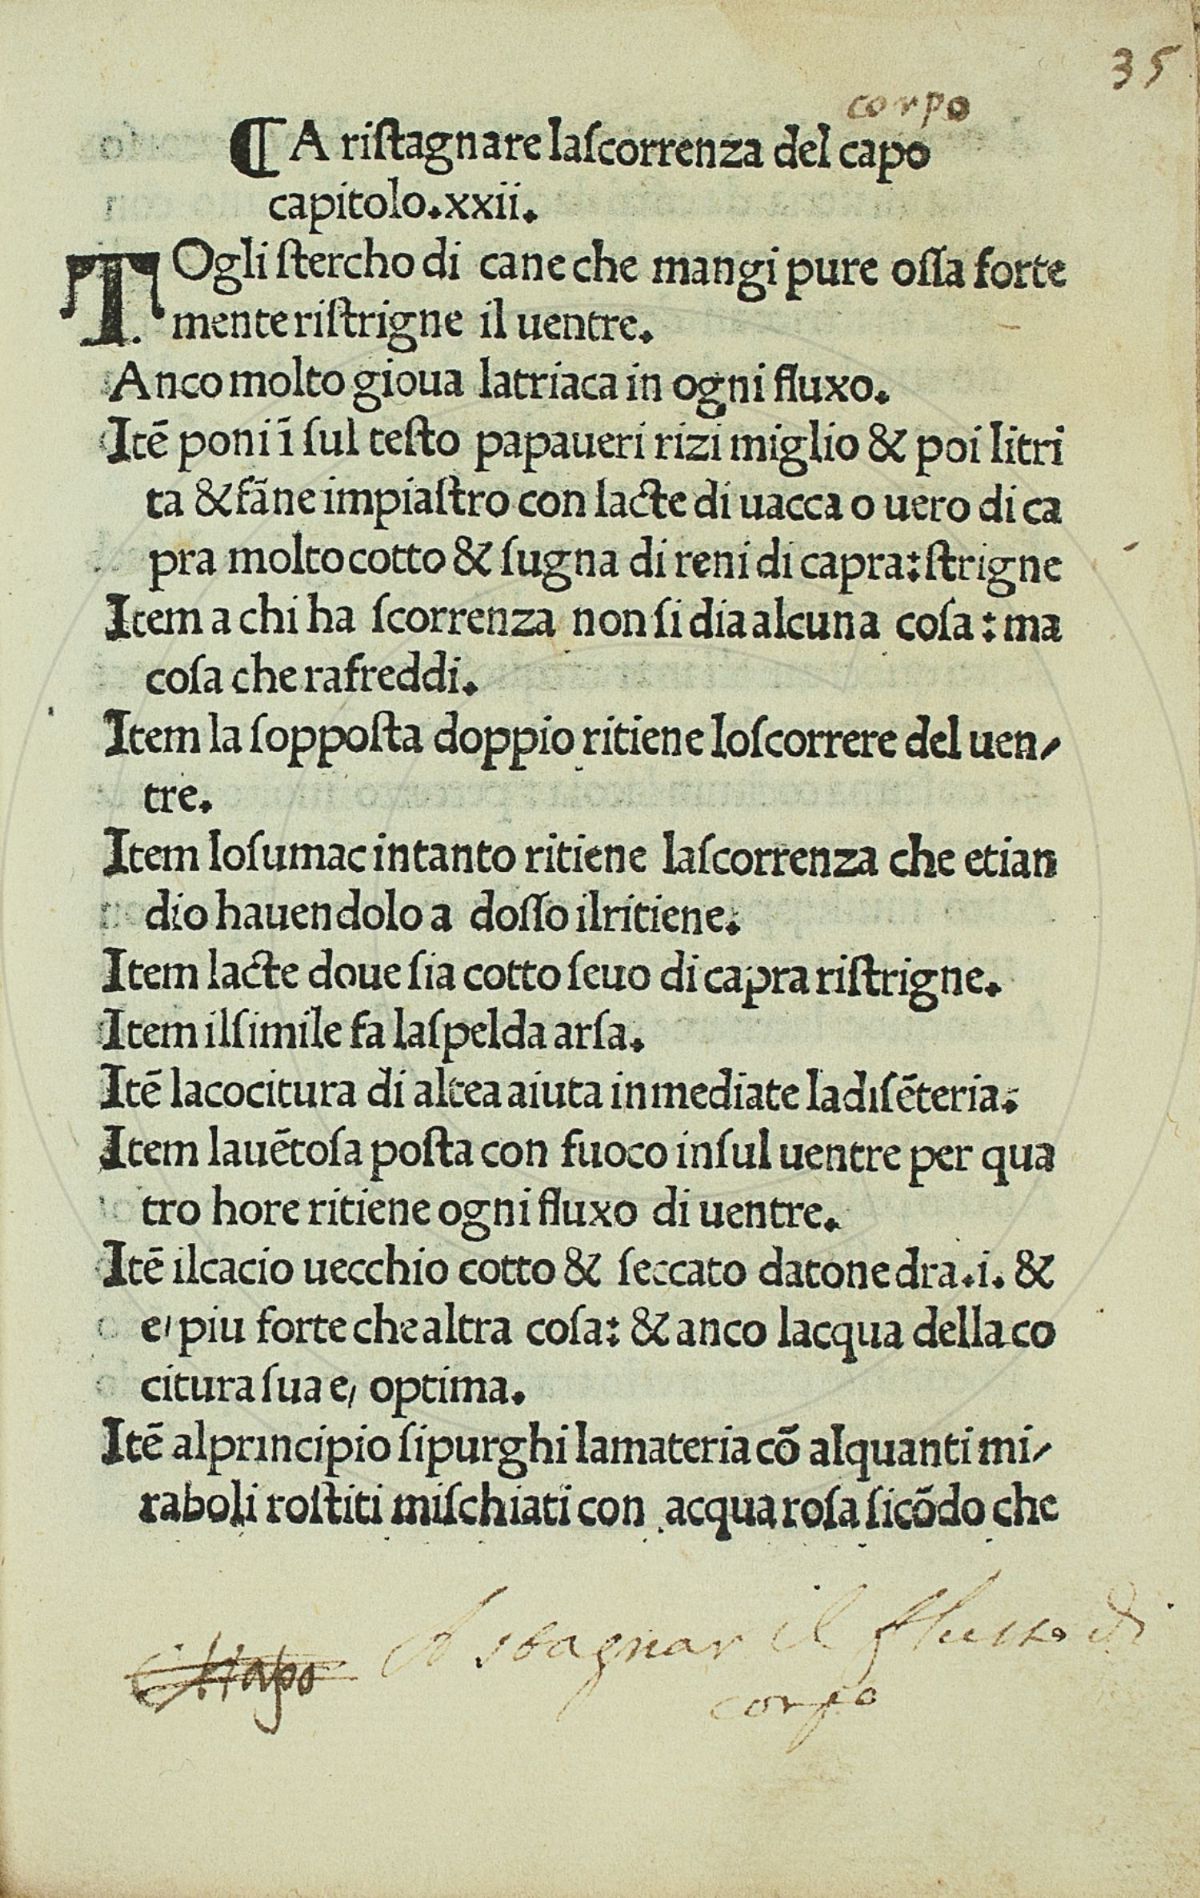 35
corpo
¶ A riſtagnare laſcorrenza del capo
capitolo.xxii.
TOgli ſtercho di cane che mangi pure oſſa forte
mente riſtrigne il uentre.
Anco molto gioua latriaca in ogni fluxo.
Itē poni ī ſul teſto papaueri rizi miglio & poi litri
ta & fāne impiaſtro con lacte di uacca o uero di ca
pra molto cotto & ſugna di reni di capra: ſtrigne
Item a chi ha ſcorrenza non ſi dia alcuna coſa: ma
coſa che rafreddi.
Item la ſoppoſta doppio ritiene loſcorrere del uen/
tre.
Item loſumac intanto ritiene laſcorrenza che etian
dio hauendolo a doſſo ilritiene.
Item lacte doue ſia cotto ſeuo di capra riſtrigne.
Item ilſimile fa laſpelda arſa.
Itē lacocitura di altea aiuta inmediate ladiſēteria.
Item lauētoſa poſta con fuoco inſul uentre per qua
tro hore ritiene ogni fluxo di uentre.
Itē ilcacio uecchio cotto & ſeccato datone dra.i. &
e/ piu forte che altra coſa: & anco lacqua della co
citura ſua e/ optima.
Itē alprincipio ſipurghi lamateria cō alquanti mi/
raboli roſtiti miſchiati con acqua roſa ſicōdo che
A stagnar il flusso di
corpo